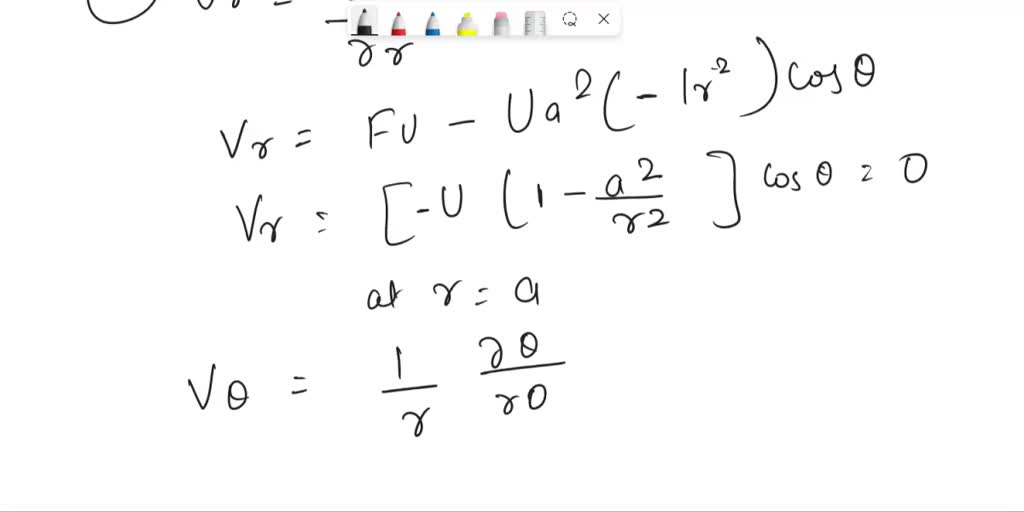 Vr =
∂r
Vr = FU - Ua²(-1r⁻²) cos θ
Vr = [-U (1 - a²/r2 ] cos θ = 0
at r = a
Vθ = 1/r ∂θ/r0